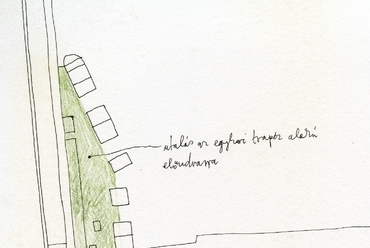 utalás az egykori trapéz alakú
előudvarra